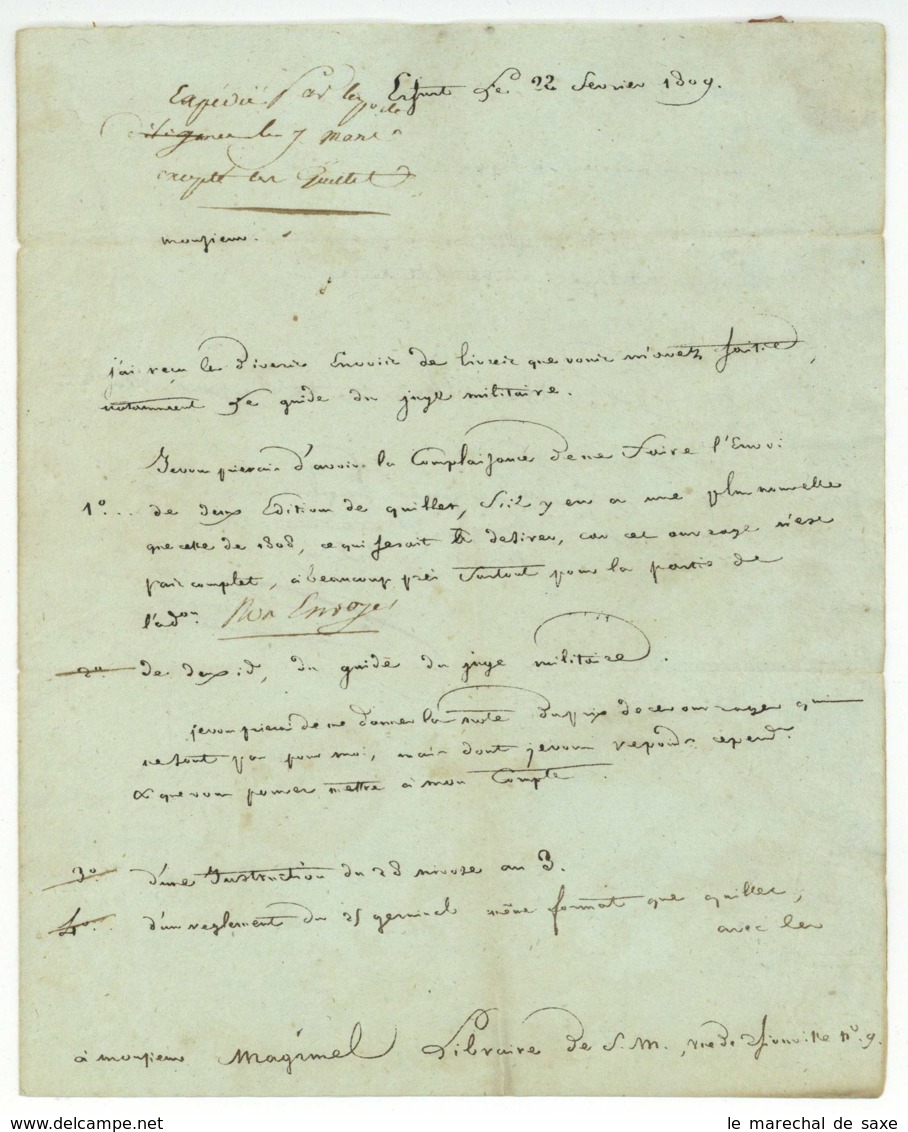 Erfurt Le 22 fevrier 1809.
Expédié Par la poste
diligence le 7 mars
excepté les Quillet
monsieur.
j'ai reçu le divers Envois de livres que vous m'avez faits,
notamment Le guide du juge militaire.
Je vous prierais d'avoir la Complaisance de me faire l'Envoi
1°... de deux Editions de quillet, s'il y en a une plus nouvelle
que celle de 1808, ce qui serait à desirer, car cet ouvrage n'est
pas complet, à beaucoup près surtout pour la partie de
l'adon. Non Envoyé
2° de deux id, du guide du juge militaire.
je vous prierai de me donner la note du prix de ces ouvrages qui
ne sont pas pour moi, mais dont je vous reponds cepend.t
& que vous pouvez mettre à mon Compte.
3° d'une Instruction du 28 nivose an 3.
4° d'un reglement du 25 germinal même format que quillet,
avec les
à monsieur Magimel Libraire de S. M., rue de Thionville n° 9.
le marechal de saxe